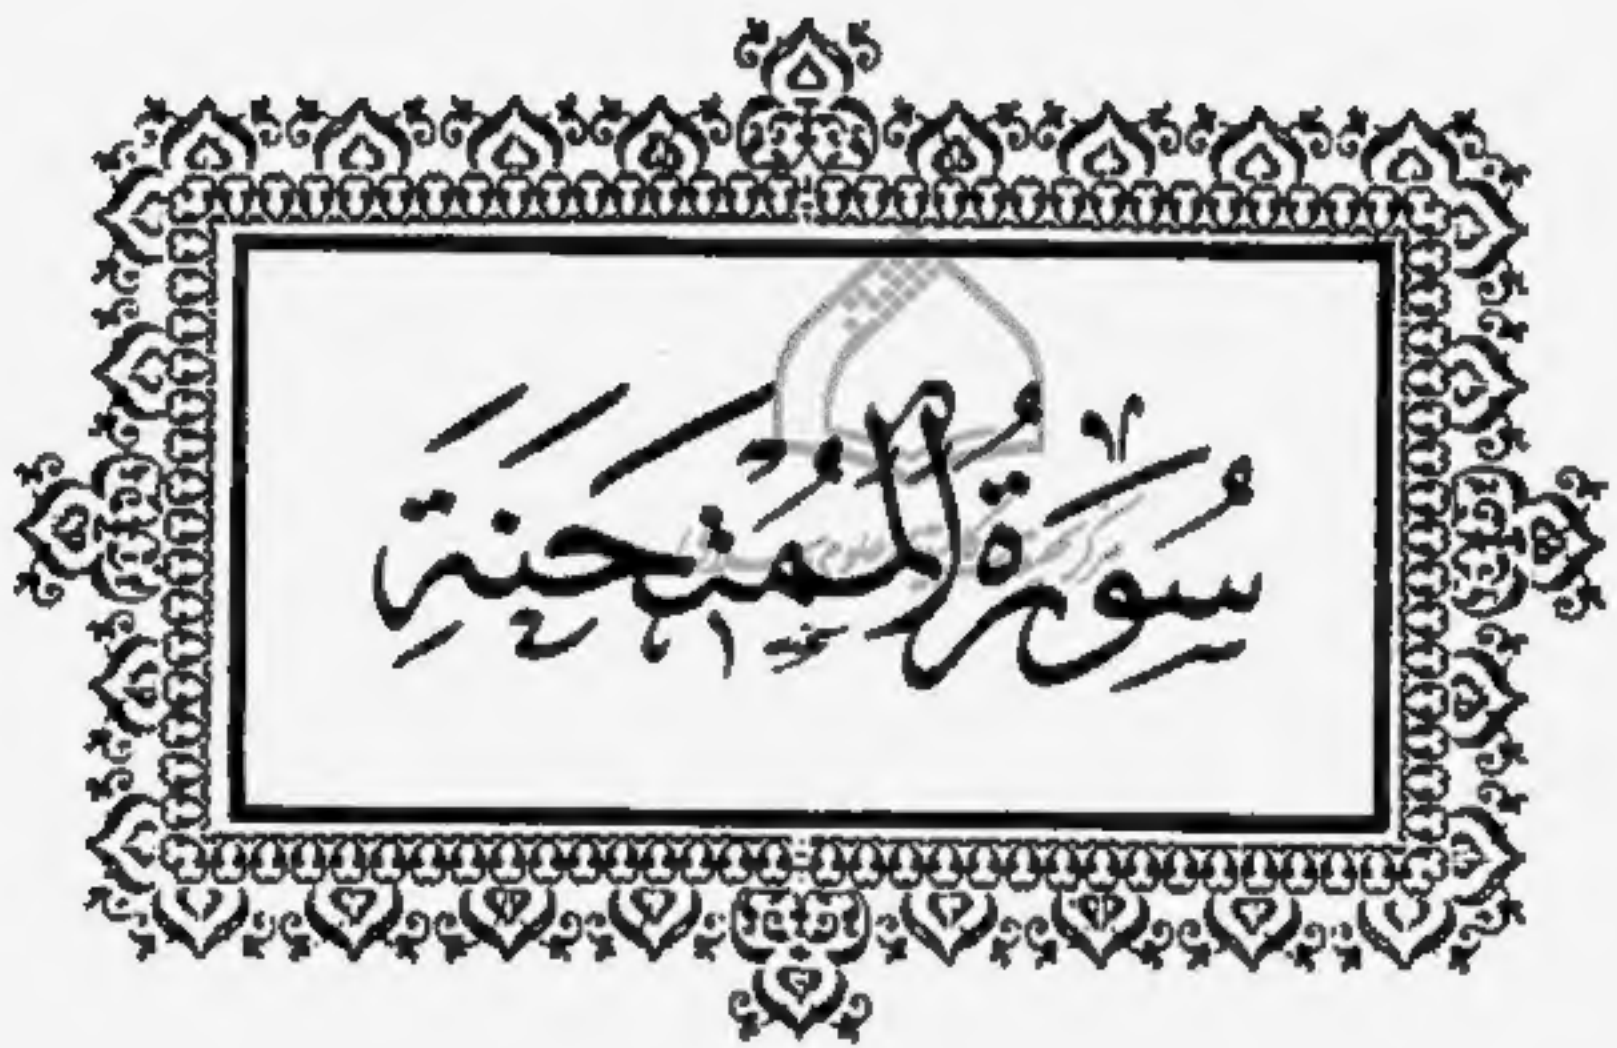 سُورَةُ المُمْتَحَنَةِ